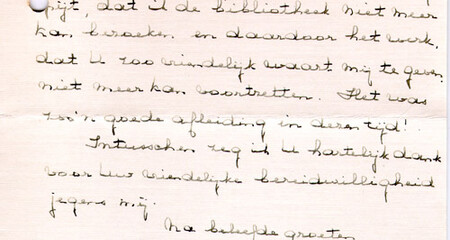 spijt, dat ik de bibliotheek niet meer
kan bezoeken en daardoor het werk,
dat U zoo vriendelijk waart mij te geven
niet meer kan voortzetten. Het was
zoo'n goede afleiding in dezen tijd!
Intusschen zeg ik U hartelijk dank
voor Uw vriendelijke bereidwilligheid
jegens mij.
Na beleefde groeten